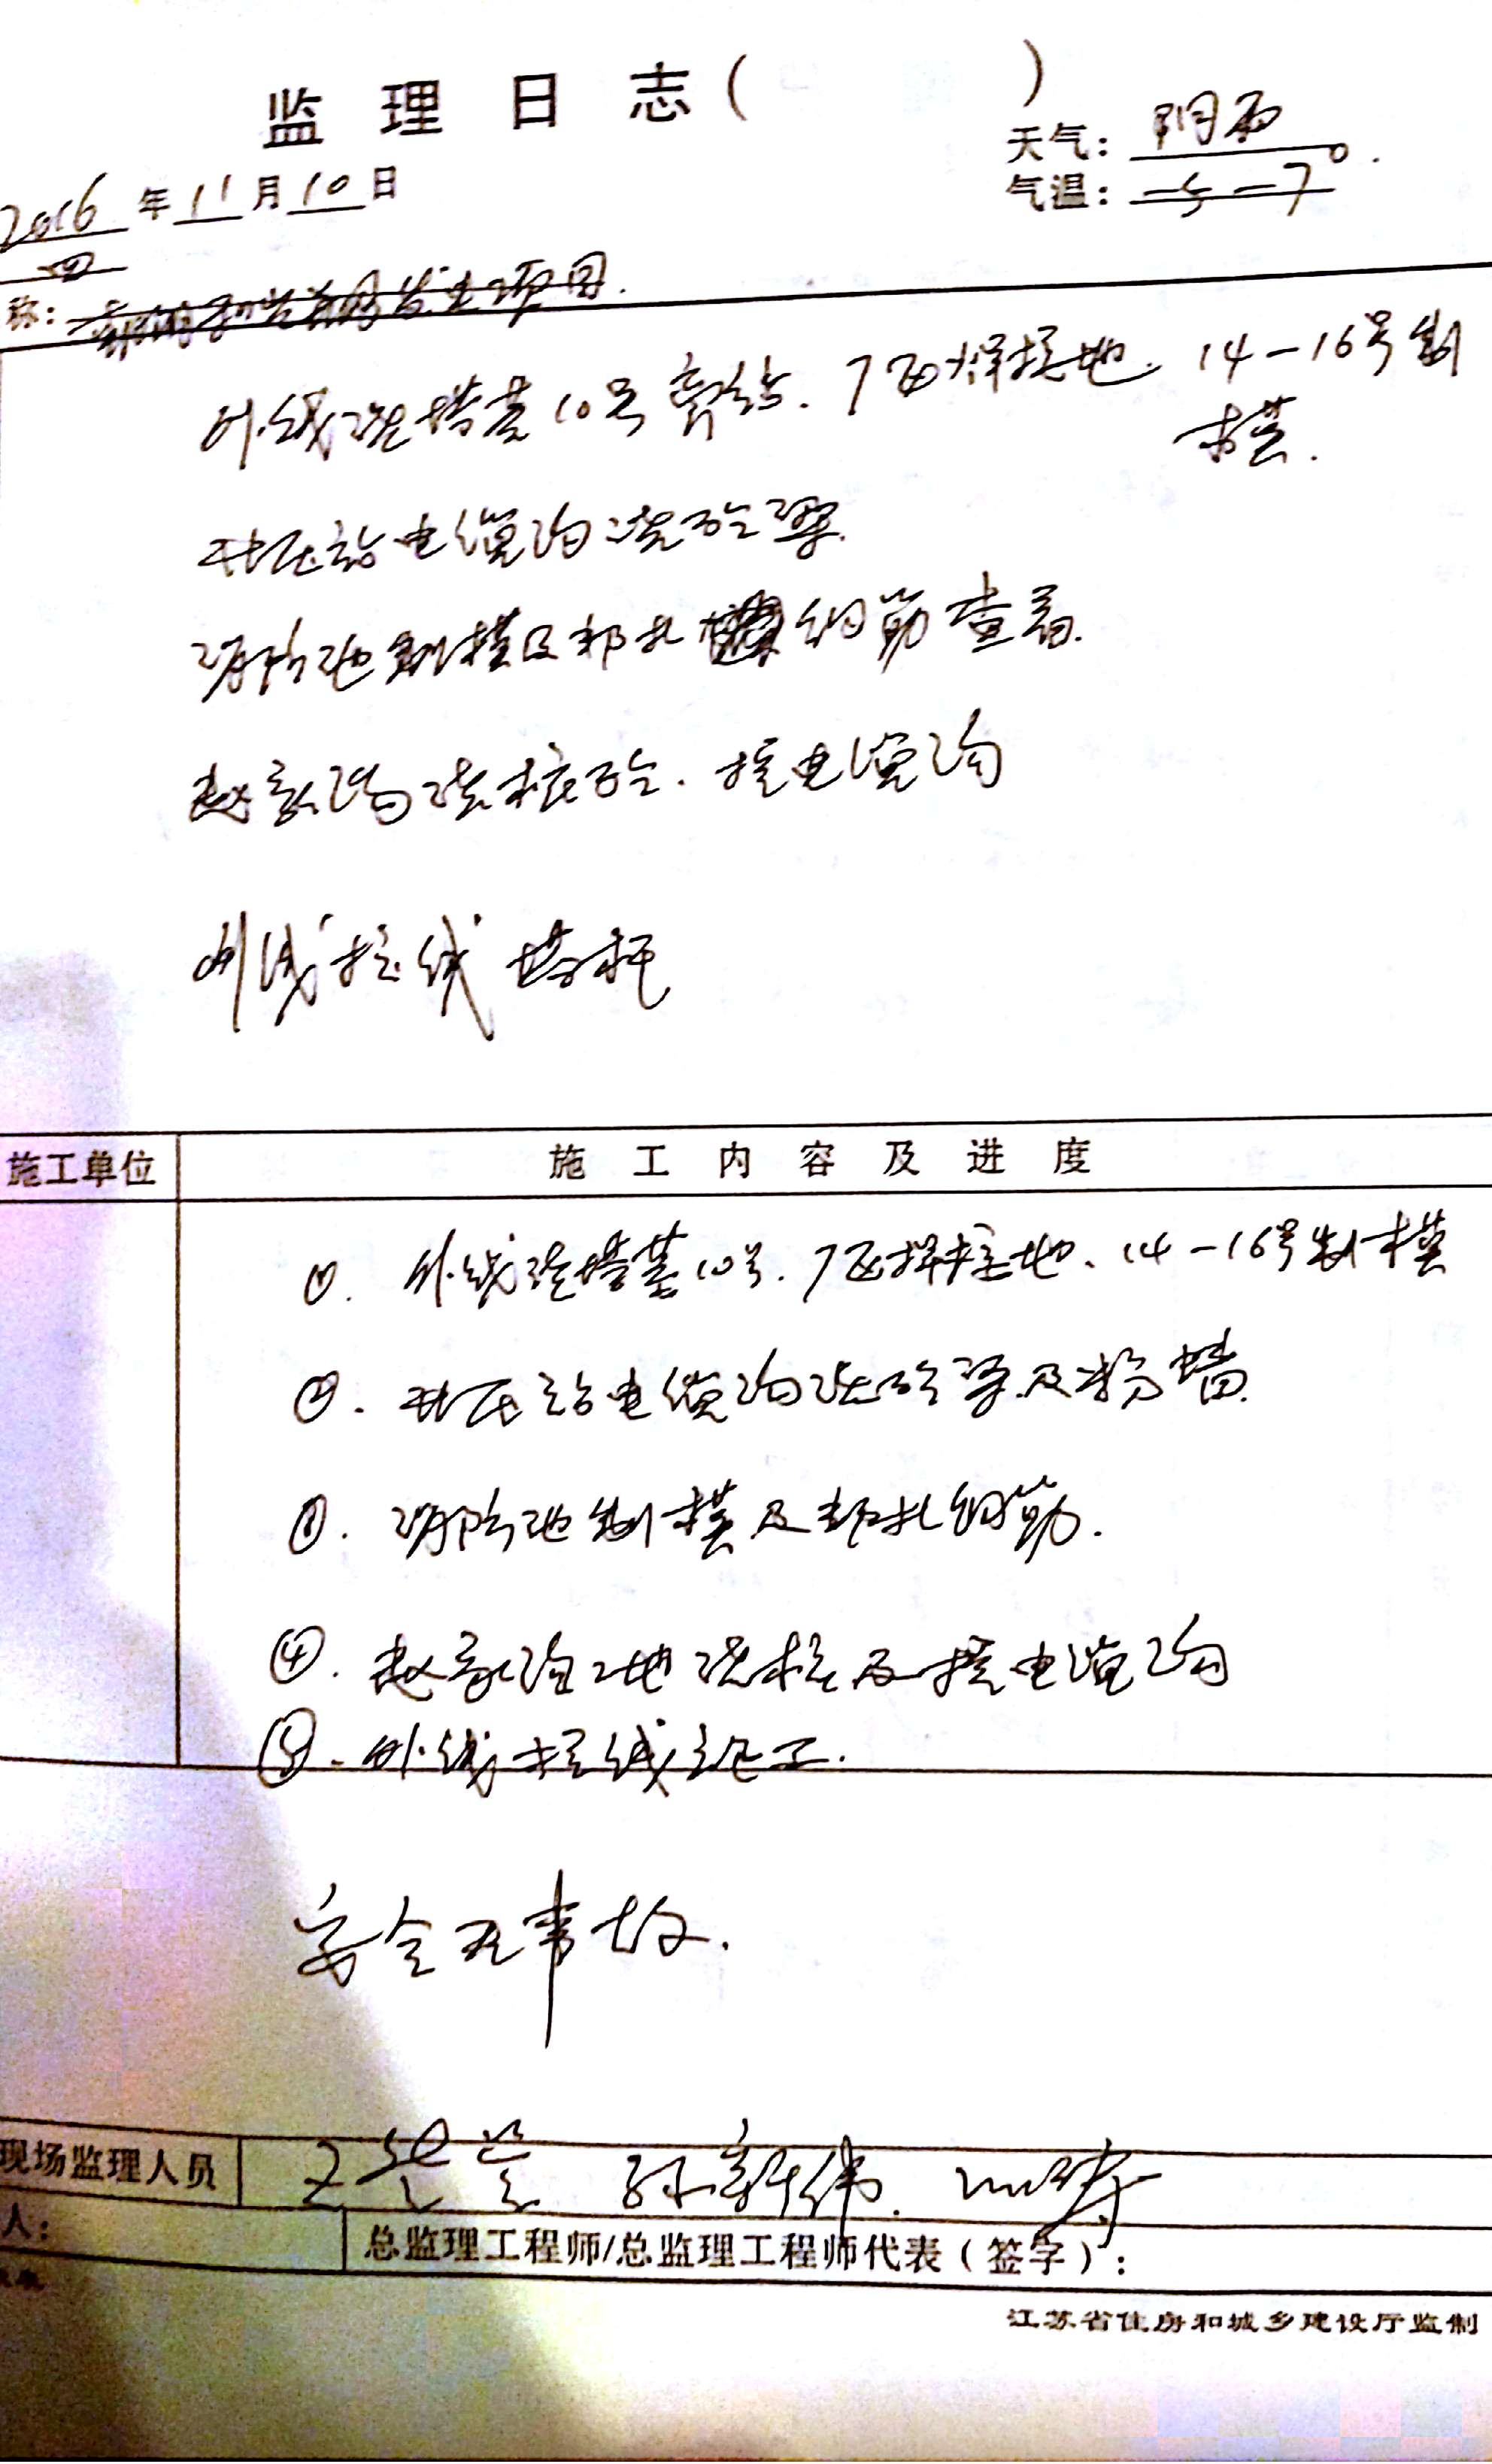 监理日志( )
天气：阴雨
2016年11月10日
气温：-5-7°.
四
称：
外线浇塔基10号旁站.7品焊接地.14-16号制
模.
升压站电缆沟浇砼梁.
消防池制模及邦扎钢筋查看.
赵家沟浇桩砼.挖电缆沟
外线拉线塔杆
施工单位
施工内容及进度
①.外线浇塔基10号.7品焊接地、14-16号制模
②.升压站电缆沟浇砼梁及粉墙.
③.消防池制模及邦扎钢筋.
④.赵家沟工地浇桩及挖电缆沟
⑤.外线拉线施工.
安全无事故.
现场监理人员
孙新伟.
人：
总监理工程师/总监理工程师代表（签字）：
江苏省住房和城乡建设厅监制